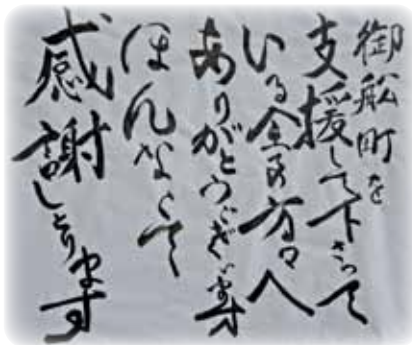 御船町を
支援して下さって
いる全ての方々へ
ありがとうございます
ほんなこて
感謝しとります